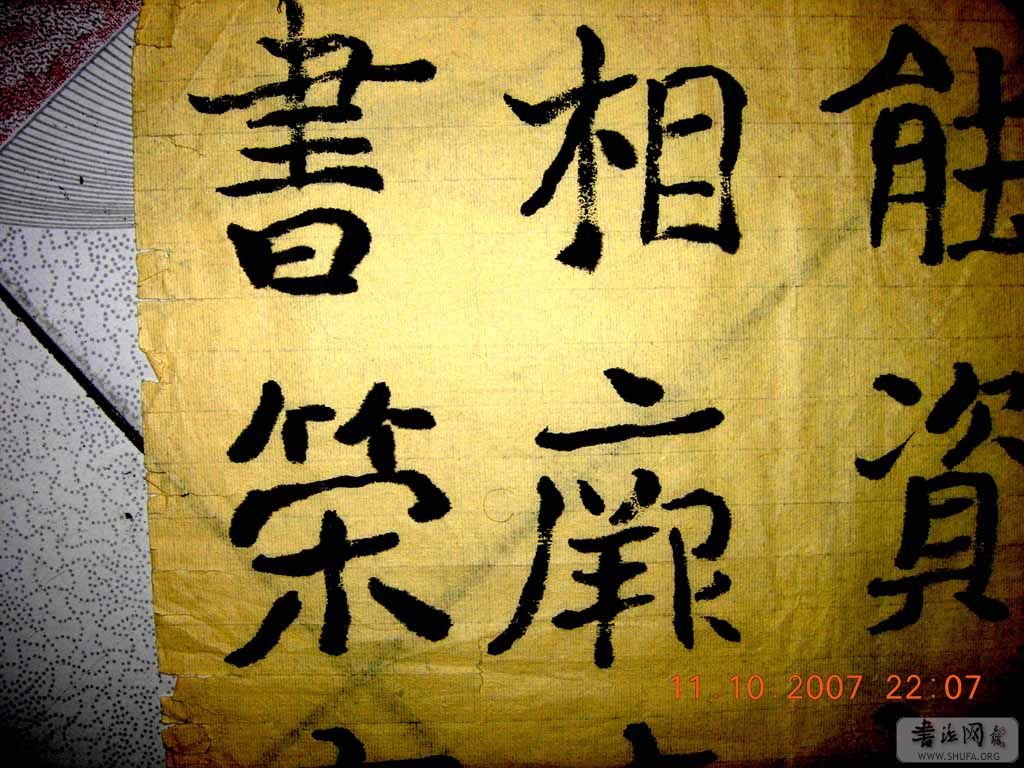 能資
相
書策
11 10 2007 22:07
書法网
WWW.SHUFA.ORG